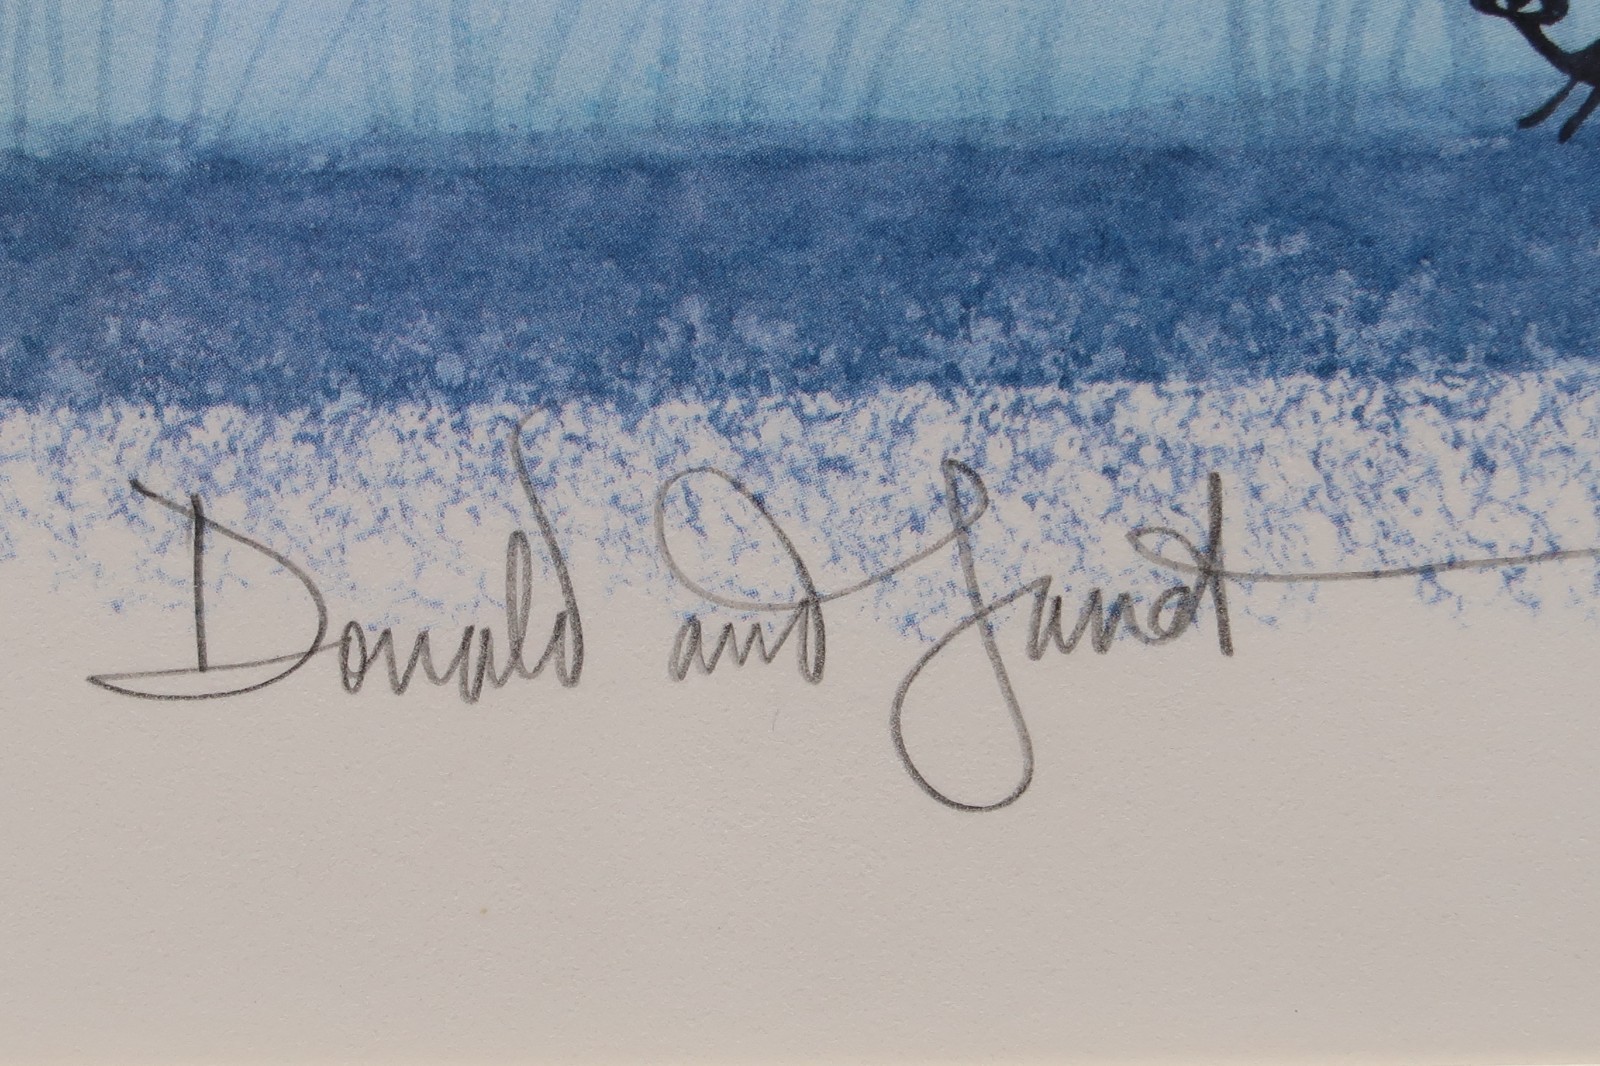 Donald and Janet